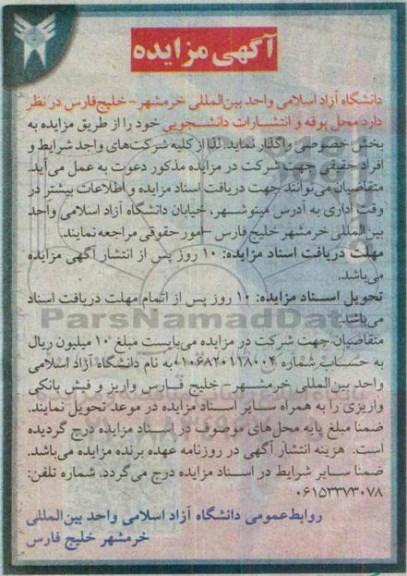 آگهی مزایده
دانشگاه آزاد اسلامی واحد بین‌المللی خرمشهر-خلیج‌فارس در نظر
دارد محل بوفه و انتشارات دانشجویی خود را از طریق مزایده به
بخش خصوصی واگذار نماید. لذا از کلیه شرکت‌های واجد شرایط و
افراد حقیقی جهت شرکت در مزایده مذکور دعوت به عمل می‌آید.
متقاضیان می‌توانند جهت دریافت اسناد مزایده و اطلاعات بیشتر در
وقت اداری به آدرس مینوشهر، خیابان دانشگاه آزاد اسلامی واحد
بین‌المللی خرمشهر خلیج فارس -امور حقوقی مراجعه نمایند.
مهلت دریافت اسناد مزایده: ۱۰ روز پس از انتشار آگهی مزایده
می‌باشد.
تحویل اسناد مزایده: ۱۰ روز پس از اتمام مهلت دریافت اسناد
می‌باشد.
ParsNamadData
متقاضیان جهت شرکت در مزایده می‌بایست مبلغ ۱۰ میلیون ریال
به حساب شماره ۰۱۰۶۸۲۰۱۱۸۰۰۴ به نام دانشگاه آزاد اسلامی
واحد بین المللی خرمشهر- خلیج فارس واریز و فیش بانکی
واریزی را به همراه سایر اسناد مزایده در موعد تحویل نمایند.
ضمنا مبلغ پایه محل‌های موصوف در اسناد مزایده درج گردیده
است. هزینه انتشار آگهی در روزنامه عهده برنده مزایده می‌باشد.
ضمنا سایر شرایط در اسناد مزایده درج می‌گردد. شماره تلفن:
۰۶۱۵۳۳۷۳۰۷۸
روابط عمومی دانشگاه آزاد اسلامی واحد بین‌المللی
خرمشهر خلیج فارس